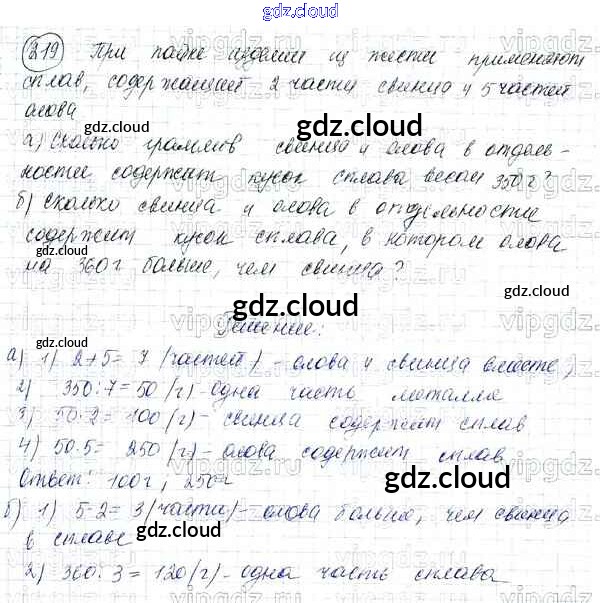 gdz.cloud
219 При пайке изделий из жести применяют
сплав, содержащий 2 части свинца и 5 частей
олова
а) Сколько граммов свинца и олова в отдель-
ности содержит кусок сплава весом 350 г?
б) Сколько свинца и олова в отдельности
содержит кусок сплава, в котором олова
на 360 г больше, чем свинца?
Решение:
а) 1) 2+5= 7 (частей) - олова и свинца вместе,
2) 350:7=50 (г) - одна часть металла
3) 50·2=100(г) - свинца содержит сплав
4) 50·5= 250 (г) - олова содержит сплав
Ответ: 100г, 250г
б) 1) 5-2= 3(части) - олова больше, чем свинца
в сплаве
2) 360:3=120(г) - одна часть сплава
gdz.cloud
gdz.cloud
gdz.cloud
gdz.cloud
gdz.cloud
gdz.cloud
gdz.cloud
gdz.cloud
gdz.cloud
vipgdz.ru